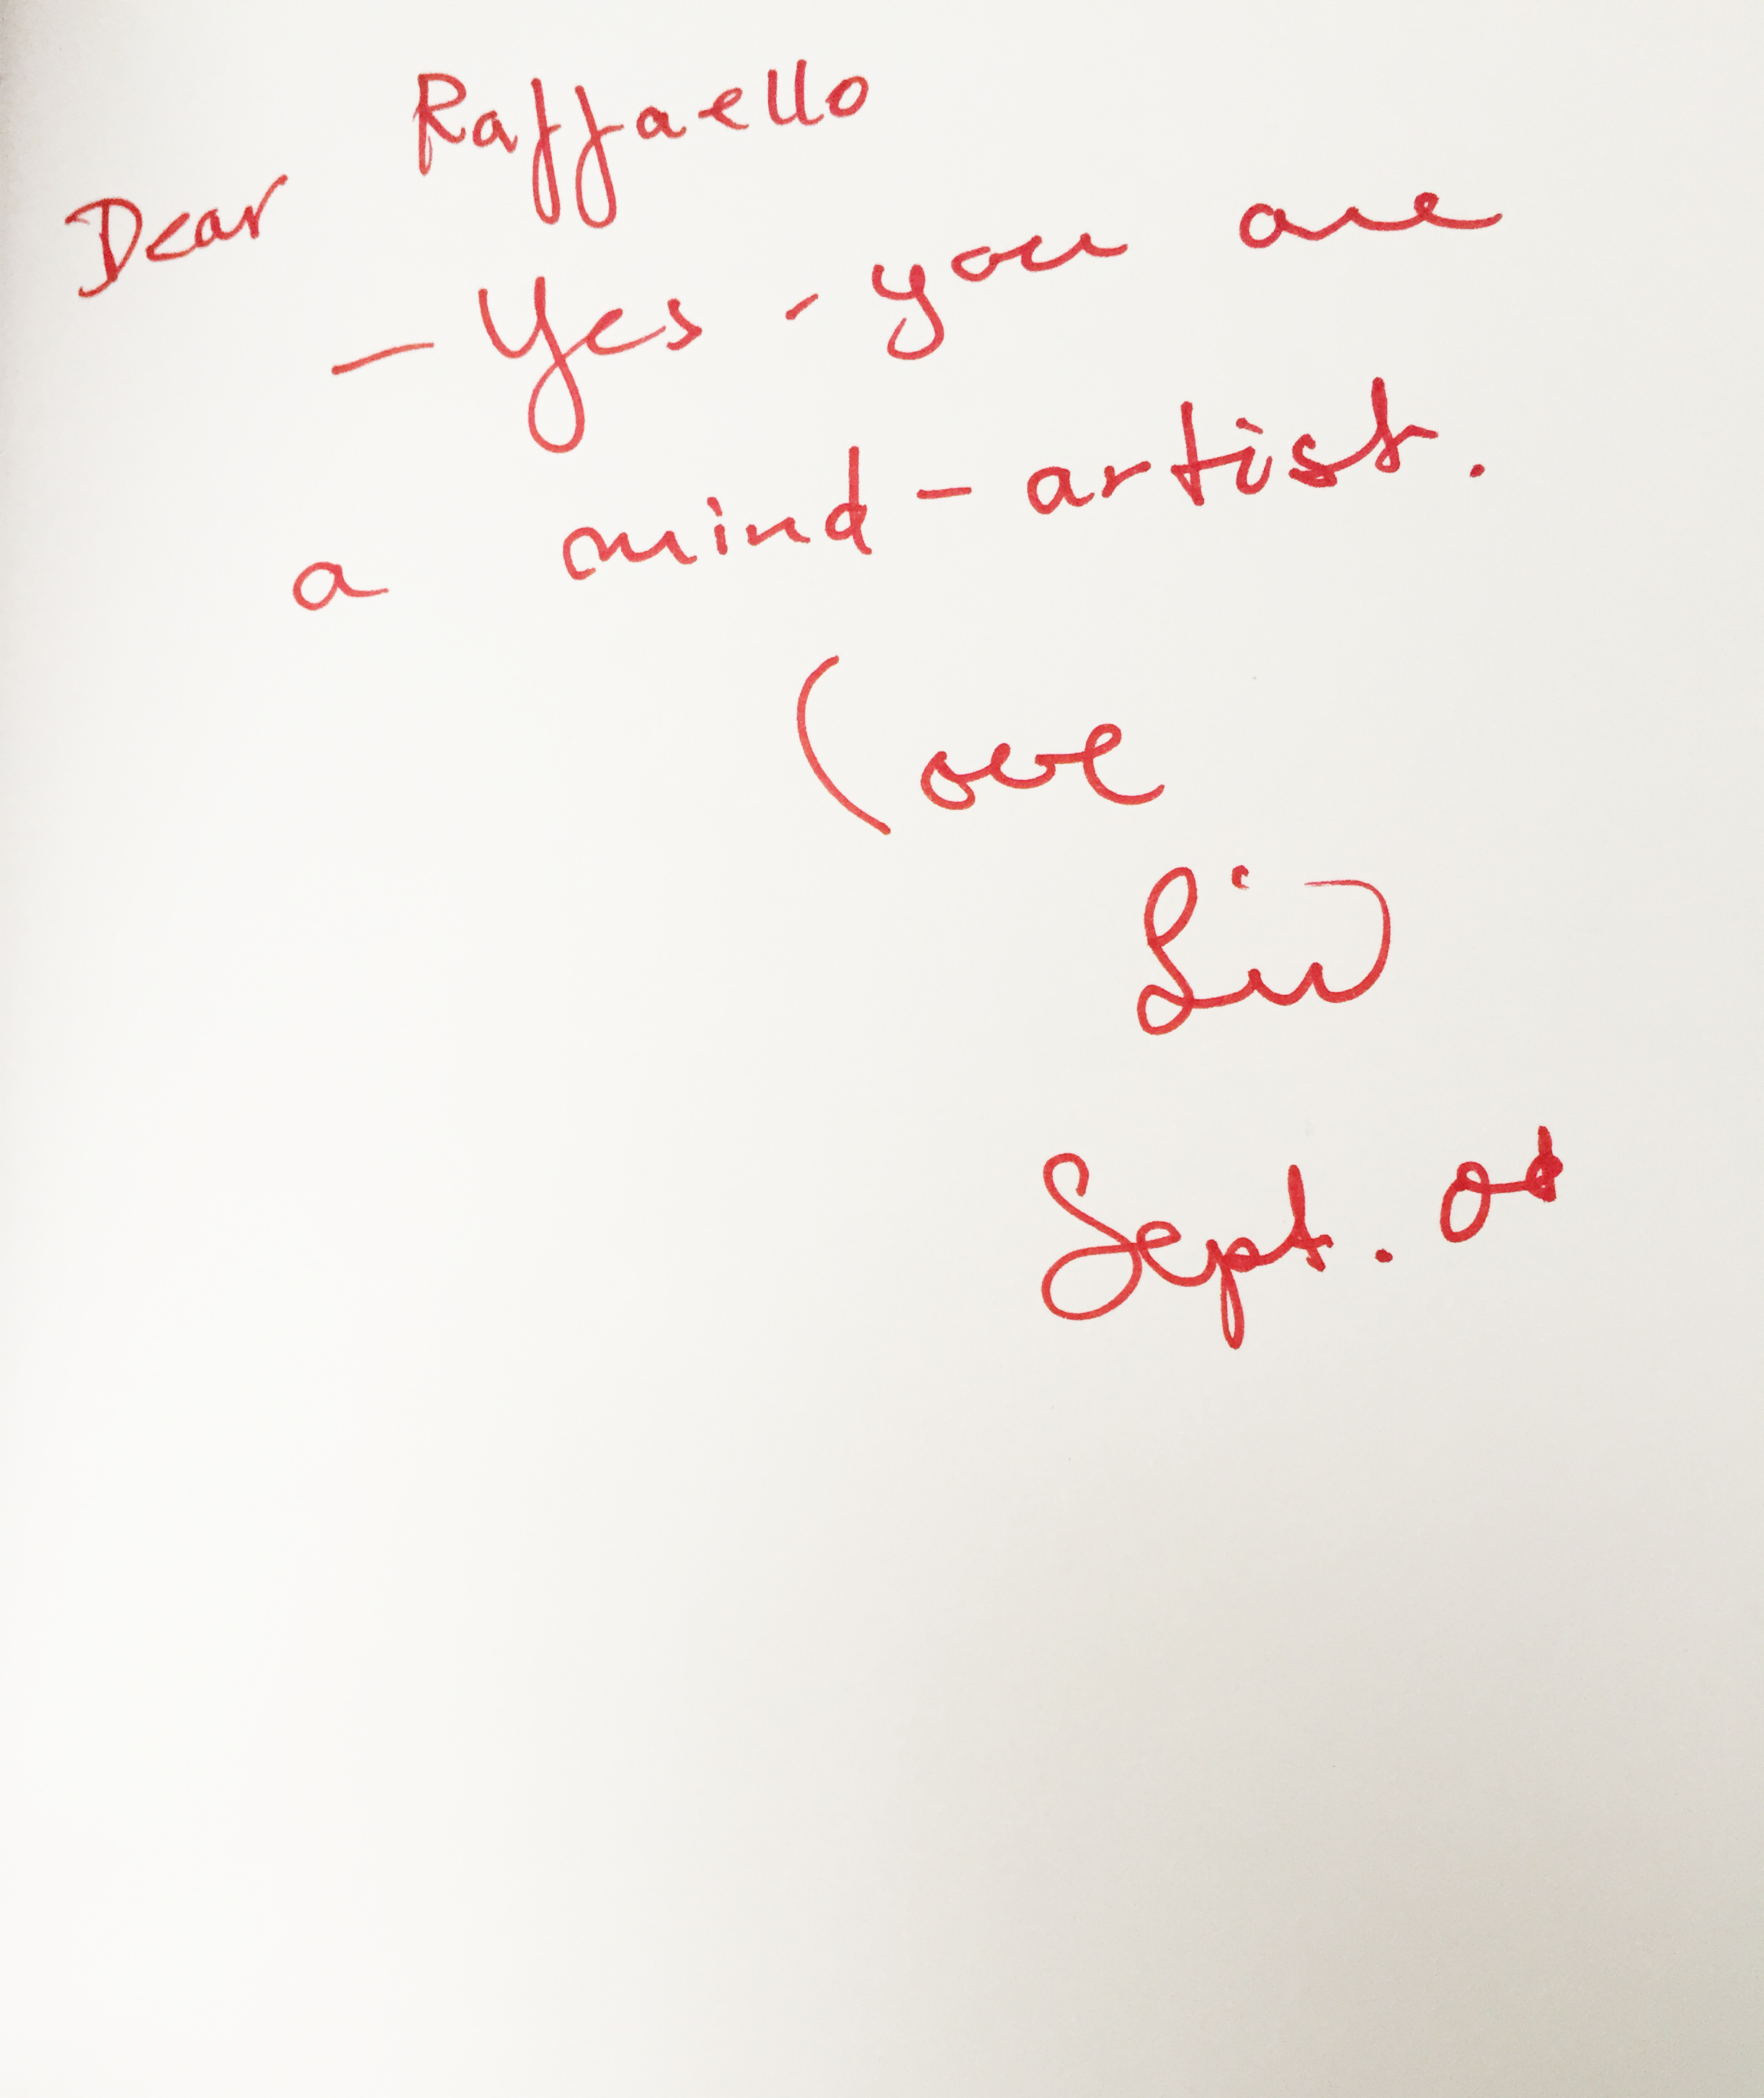 Dear Raffaello
- Yes - you are
a mind-artist.
Love
Liv
Sept.